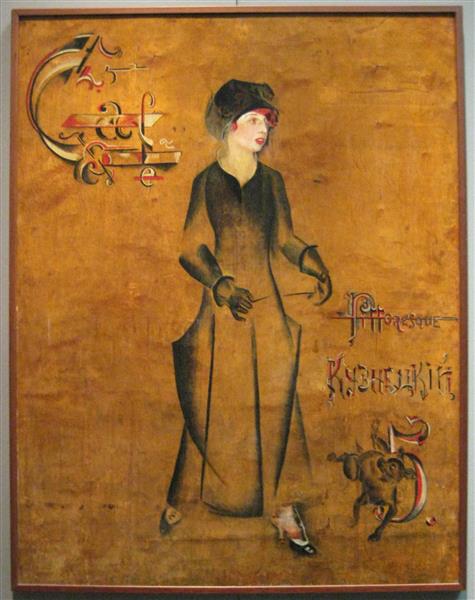 Cafe
Pittoresque
Кузнецкій
5